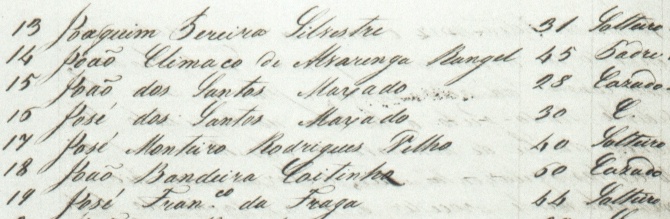 13 Joaquim Pereira Silvestre 31 Solteiro
14 João Climaco de Alvarenga Rangel 45 Padre
15 João dos Santos Maxado 28 Cazado
16 José dos Santos Maxado 30 C.
17 José Monteiro Rodrigues Velho 40 Solteiro
18 João Bandeira Coitinho 50 Cazado
19 José Fran.co da Fraga 44 Solteiro